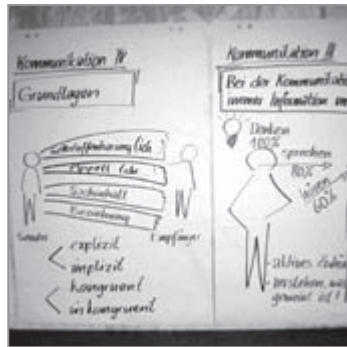 Kommunikation IV
Grundlagen
Selbstoffenbarung (ich)
Appell
Sachinhalt
Beziehung
Sender
Empfänger
explizit
implizit
kongruent
inkongruent
Kommunikation III
Bei der Kommunikat
immer Information
Denken
100%
sprechen
80%
hören
60%
aktives
verstehen, was
gemeint ist!